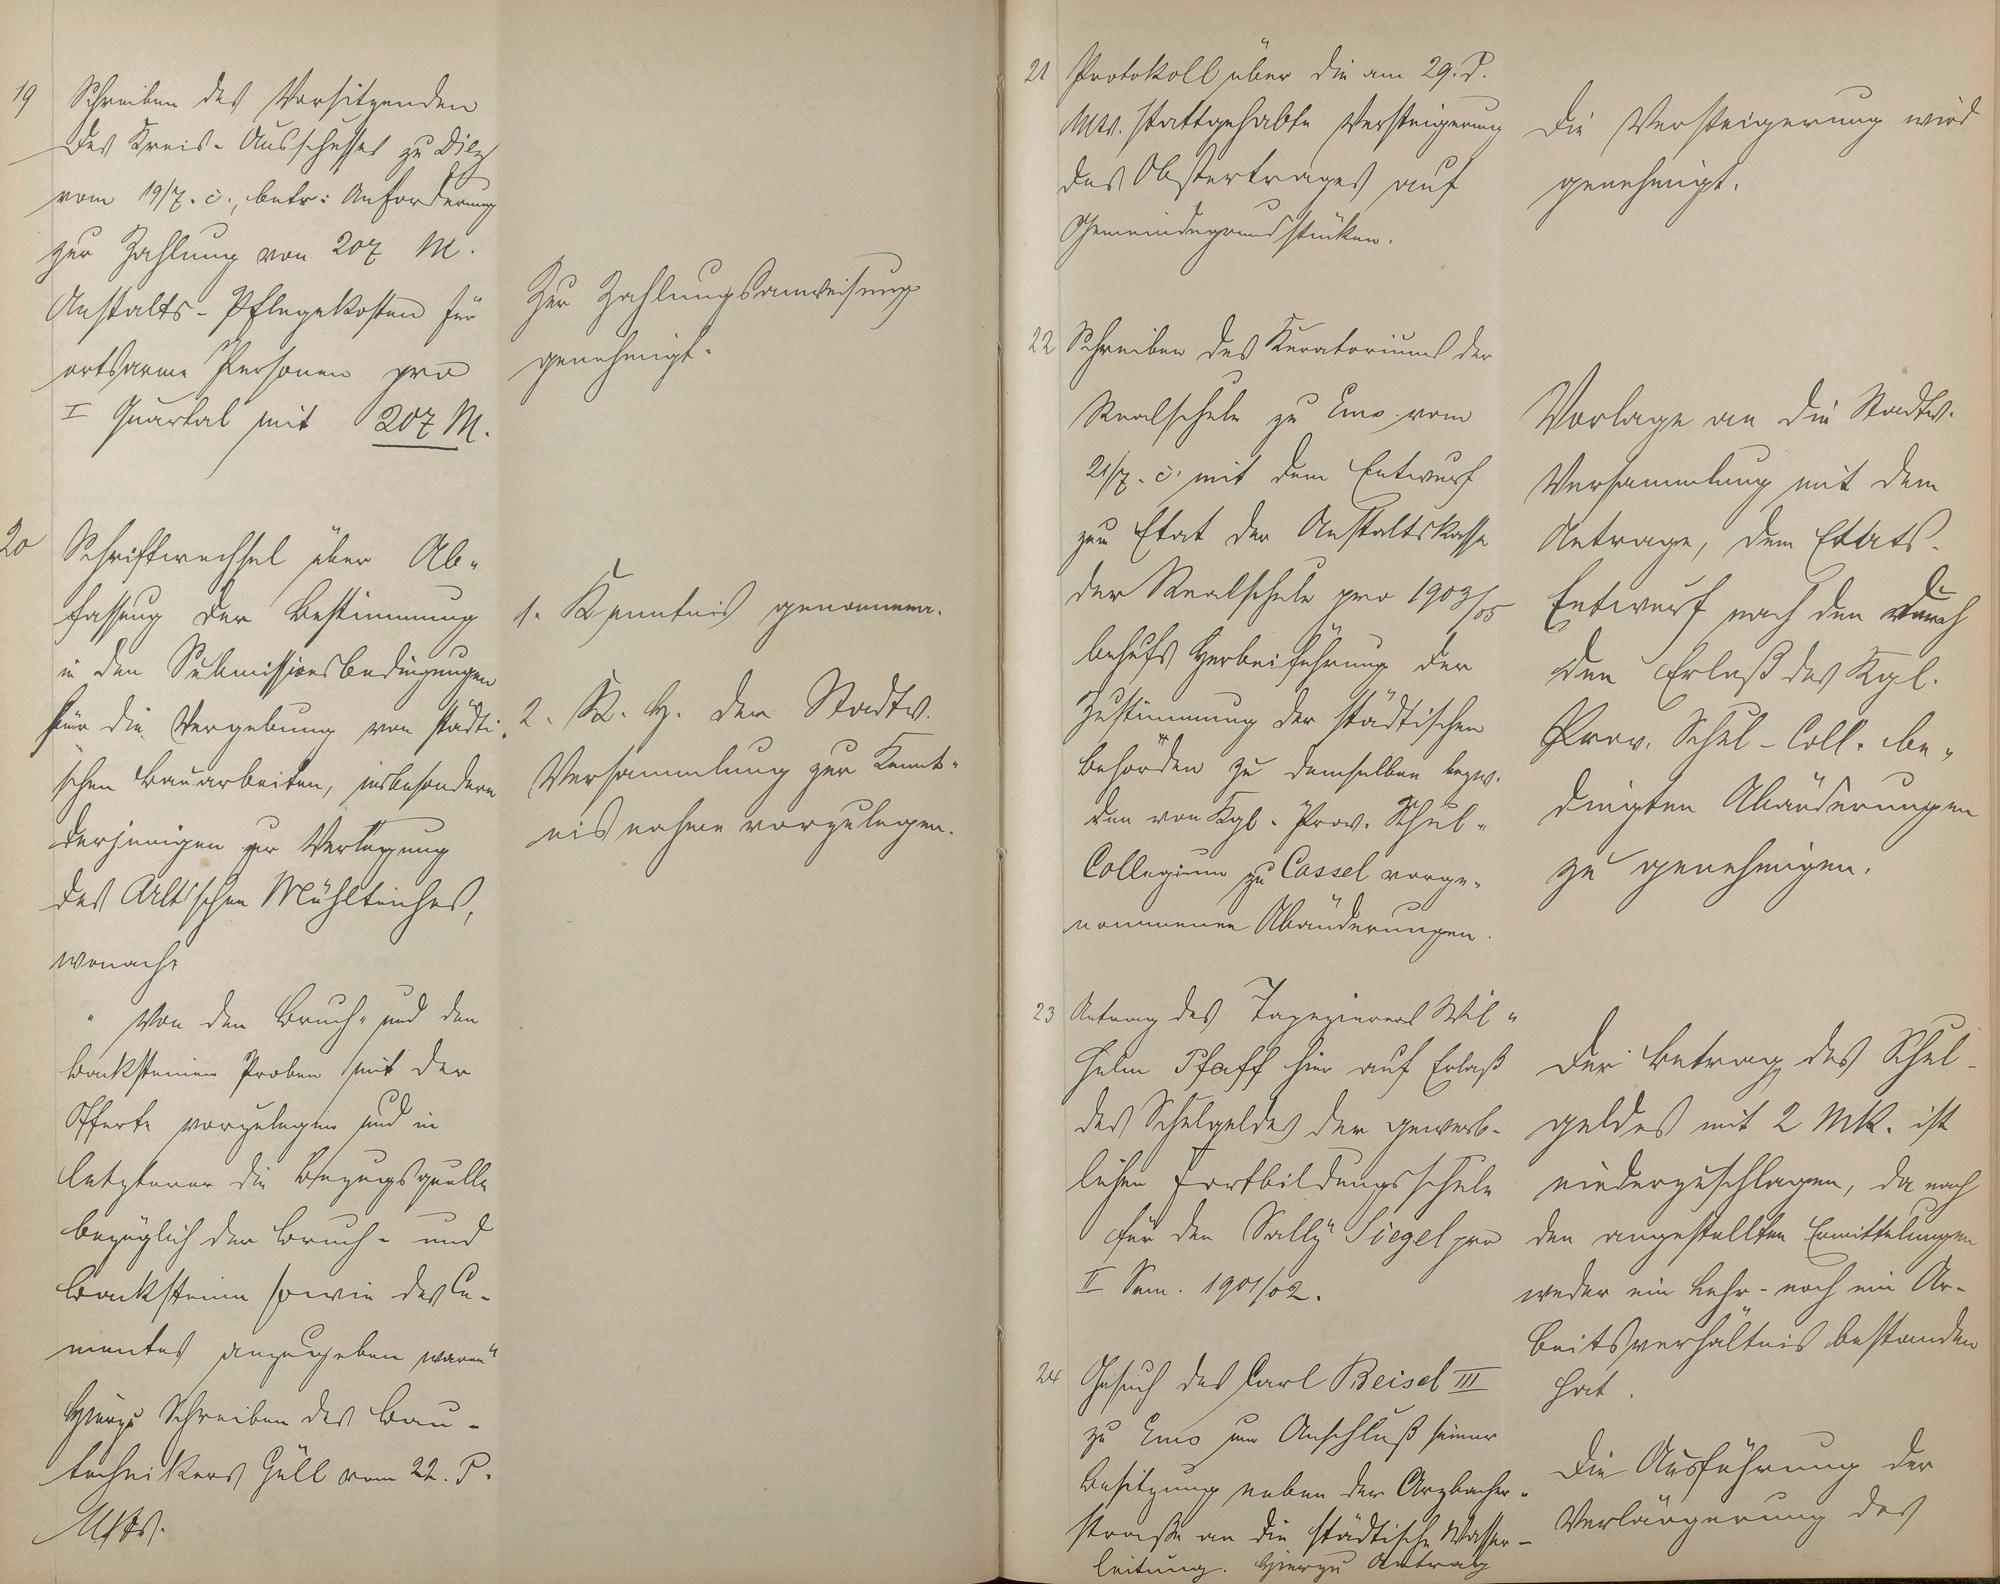 19 Schreiben des Vorsitzenden
des Kreis-Ausschusses zu Diez
vom 19/7. c., betr: Anforderung
zur Zahlung von 207 M.
Anstalts-Pflegekosten für
ortsarme Personen pro
I Quartal mit 207 M.
Zur Zahlungsanweisung
genehmigt.
20 Schriftwechsel über Ab-
fassung der Bestimmung
in den Submissionsbedingungen
für die Vergebung von städti-
schen Bauarbeiten, insbesondere
derjenigen zur Verlegung
des Alt'schen Mühlteiches,
wonach:
" Von den Bruch- und den
Backsteinen Proben mit der
Offerte vorzulegen und in
letzterer die Bezugsquelle
bezüglich der Bruch- und
Backsteine sowie des Ce-
mentes anzugeben waren"
Hierzu Schreiben des Bau-
technikers Güll vom 22. d.
Mts.
1. Kenntnis genommen.
2. K. H. der Stadtv.
Versammlung zur Kennt-
nisnahme vorzulegen.
21 Protokoll über die am 29. d.
Mts. stattgehabte Versteigerung
des Obstertrages auf
Gemeindegrundstücken.
Die Versteigerung wird
genehmigt.
22 Schreiben des Kuratoriums der
Realschule zu Ems vom
21/7. c. mit dem Entwurf
zum Etat der Anstaltskasse
der Realschule pro 1903/05
behufs Herbeiführung der
Zustimmung der städtischen
Behörden zu demselben bezw.
den von Kgl. Prov. Schul-
Collegium zu Cassel vorge-
nommenen Abänderungen.
Vorlage an die Stadtv.
Versammlung mit dem
Antrage, dem Etats-
Entwurf nach den durch
den Erlaß des Kgl.
Prov. Schul-Coll. be-
dingten Abänderungen
zu genehmigen.
23 Antrag des Tapezierers Wil-
helm Pfaff hier auf Erlaß
des Schulgeldes der gewerb-
lichen Fortbildungsschule
für den Sally Siegel pro
II Sem. 1901/02.
Der Betrag des Schul-
geldes mit 2 Mk. ist
niederzuschlagen, da nach
den angestellten Ermittelungen
weder ein Lehr- noch ein Ar-
beitsverhältnis bestanden
hat.
24 Gesuch des Carl Beisel III
zu Ems um Anschluß seiner
Besitzung neben der Arzbacher-
straße an die städtische Wasser-
leitung. Hierzu Antrag
Die Ausführung der
Verlängerung des